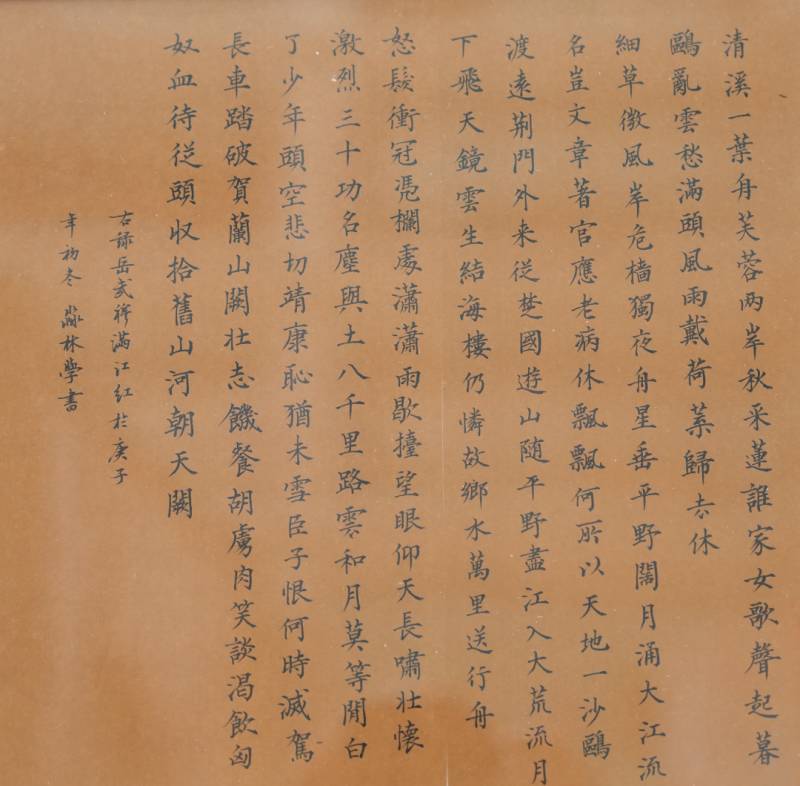 清溪一葉舟芙蓉两岸秋采蓮誰家女歌聲起暮
鷗亂雲愁滿頭風雨戴荷葉歸去休
細草微風岸危檣獨夜舟星垂平野闊月涌大江流
名豈文章著官應老病休飄飄何所以天地一沙鷗
渡遠荆門外来從楚國遊山随平野盡江入大荒流月
下飛天鏡雲生結海樓仍憐故鄉水萬里送行舟
怒髮衝冠凭欄處瀟瀟雨歇擡望眼仰天長嘯壮懷
激烈三十功名塵與土八千里路雲和月莫等閒白
了少年頭空悲切靖康恥猶未雪臣子恨何時滅駕
長車踏破賀蘭山闕壮志饑餐胡虜肉笑談渴飲匈
奴血待從頭收拾舊山河朝天闕
右録岳武穆滿江红於庚子
年初冬 淼林學書